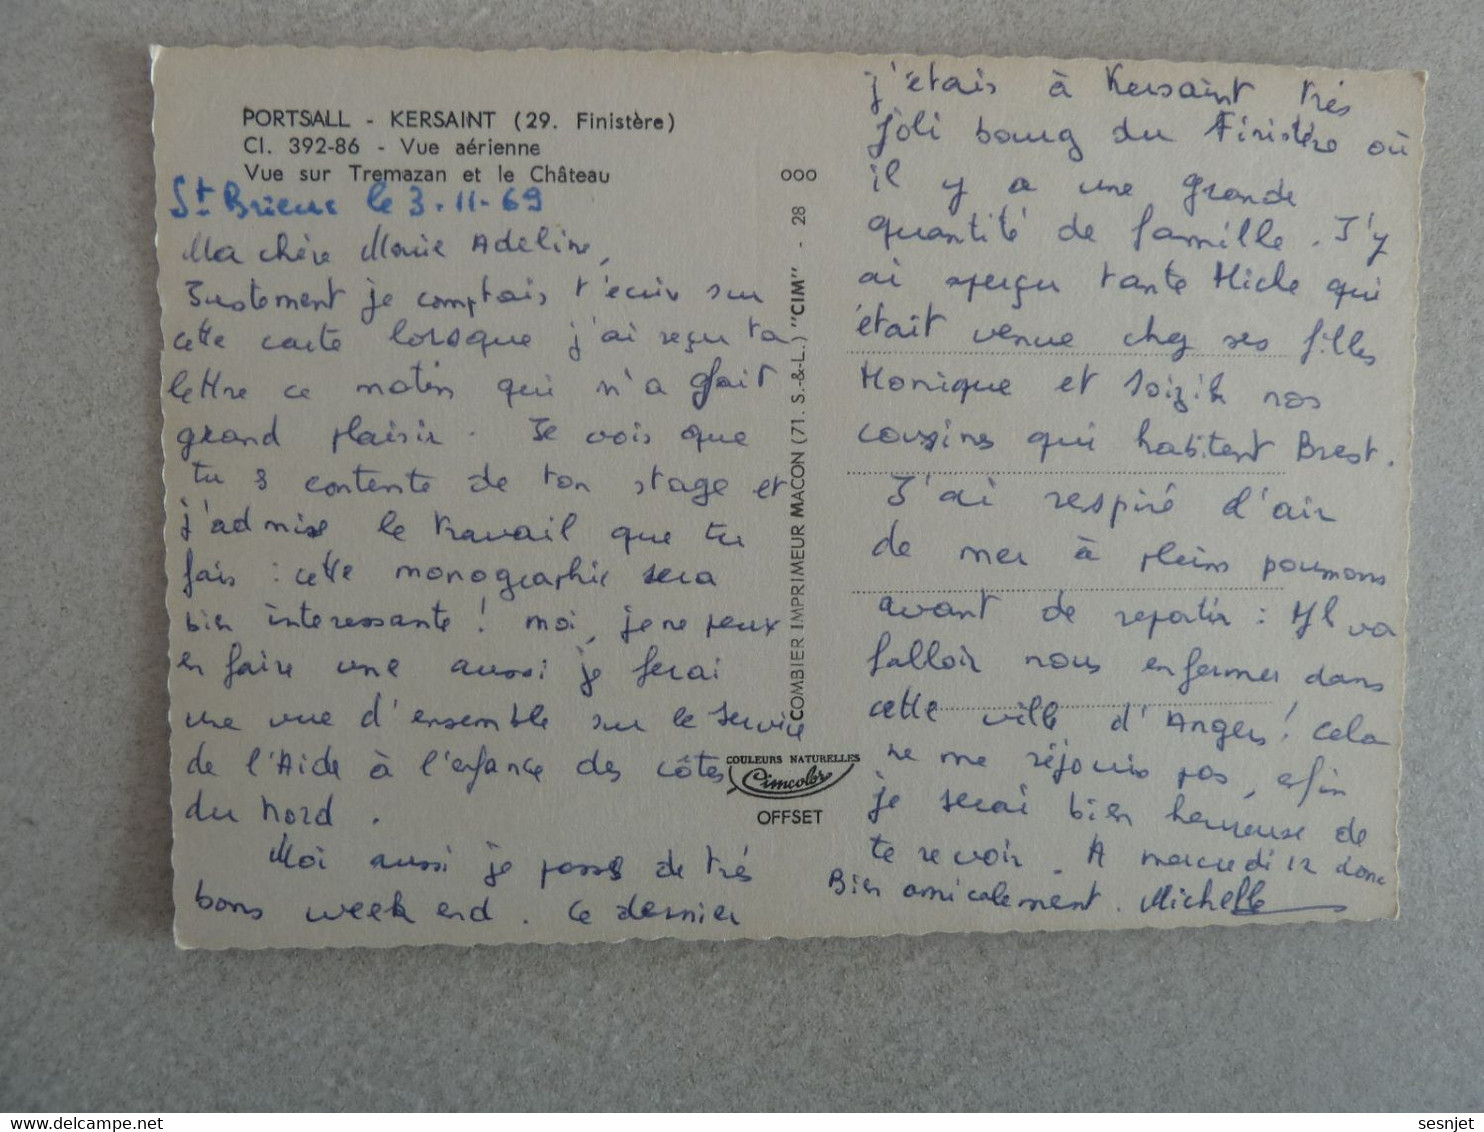 PORTSALL - KERSAINT (29. Finistère)
Cl. 392-86 - Vue aérienne
Vue sur Tremazan et le Château
St Brieuc le 3-11-69
Ma chère Marie Adeline,
Justement je comptais t'écrire sur
cette carte lorsque j'ai reçu ta
lettre ce matin qui m'a fait
grand plaisir. Je vois que
tu es contente de ton stage et
j'admire le travail que tu
fais : cette monographie sera
bien intéressante ! moi, je ne peux
en faire une aussi je ferai
une vue d'ensemble sur le service
de l'Aide à l'enfance des côtes
du Nord.
Moi aussi je passe de très
bons week end. Ce dernier
j'étais à Kersaint très
joli bourg du Finistère où
il y a une grande
quantité de famille. J'y
ai aperçu tante Miche qui
était venue chez ses filles
Monique et Soizik nos
cousines qui habitent Brest.
J'ai respiré d'air
de mer à pleins poumons
avant de repartir : Il va
falloir nous enfermer dans
cette ville d'Angers ! Cela
ne me réjouis pas, enfin
je serai bien heureuse de
te revoir. A mercredi 12 donc
Bien amicalement. Michelle
ooo
COMBIER IMPRIMEUR MACON (71. S.-&-L.) "CIM" - 28
COULEURS NATURELLES
Cimcolor
OFFSET
sesnjet